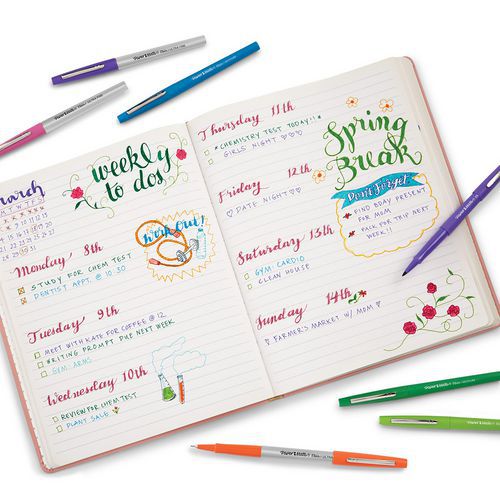 March
weekly
to dos!
Monday 8th
STUDY FOR CHEM TEST
DENTIST APPT. @ 10:30
workout!
Tuesday 9th
MEET WITH KATE FOR COFFEE @ 12
WRITING PROMPT DUE NEXT WEEK
GYM-ARMS
Wednesday 10th
REVIEW FOR CHEM TEST
PLANT SALE
Thursday 11th
*CHEMISTRY TEST TODAY!!*
GIRLS NIGHT ♡♡♡
Friday 12th
♡ DATE NIGHT ♡♡♡
Saturday 13th
GYM-CARDIO
CLEAN HOUSE
Sunday 14th
FARMER'S MARKET W/ MOM ♡
Spring
Break
Don't Forget:
FIND BDAY PRESENT
FOR MOM
PACK FOR TRIP NEXT
WEEK!!
Paper Mate Flair
Paper Mate